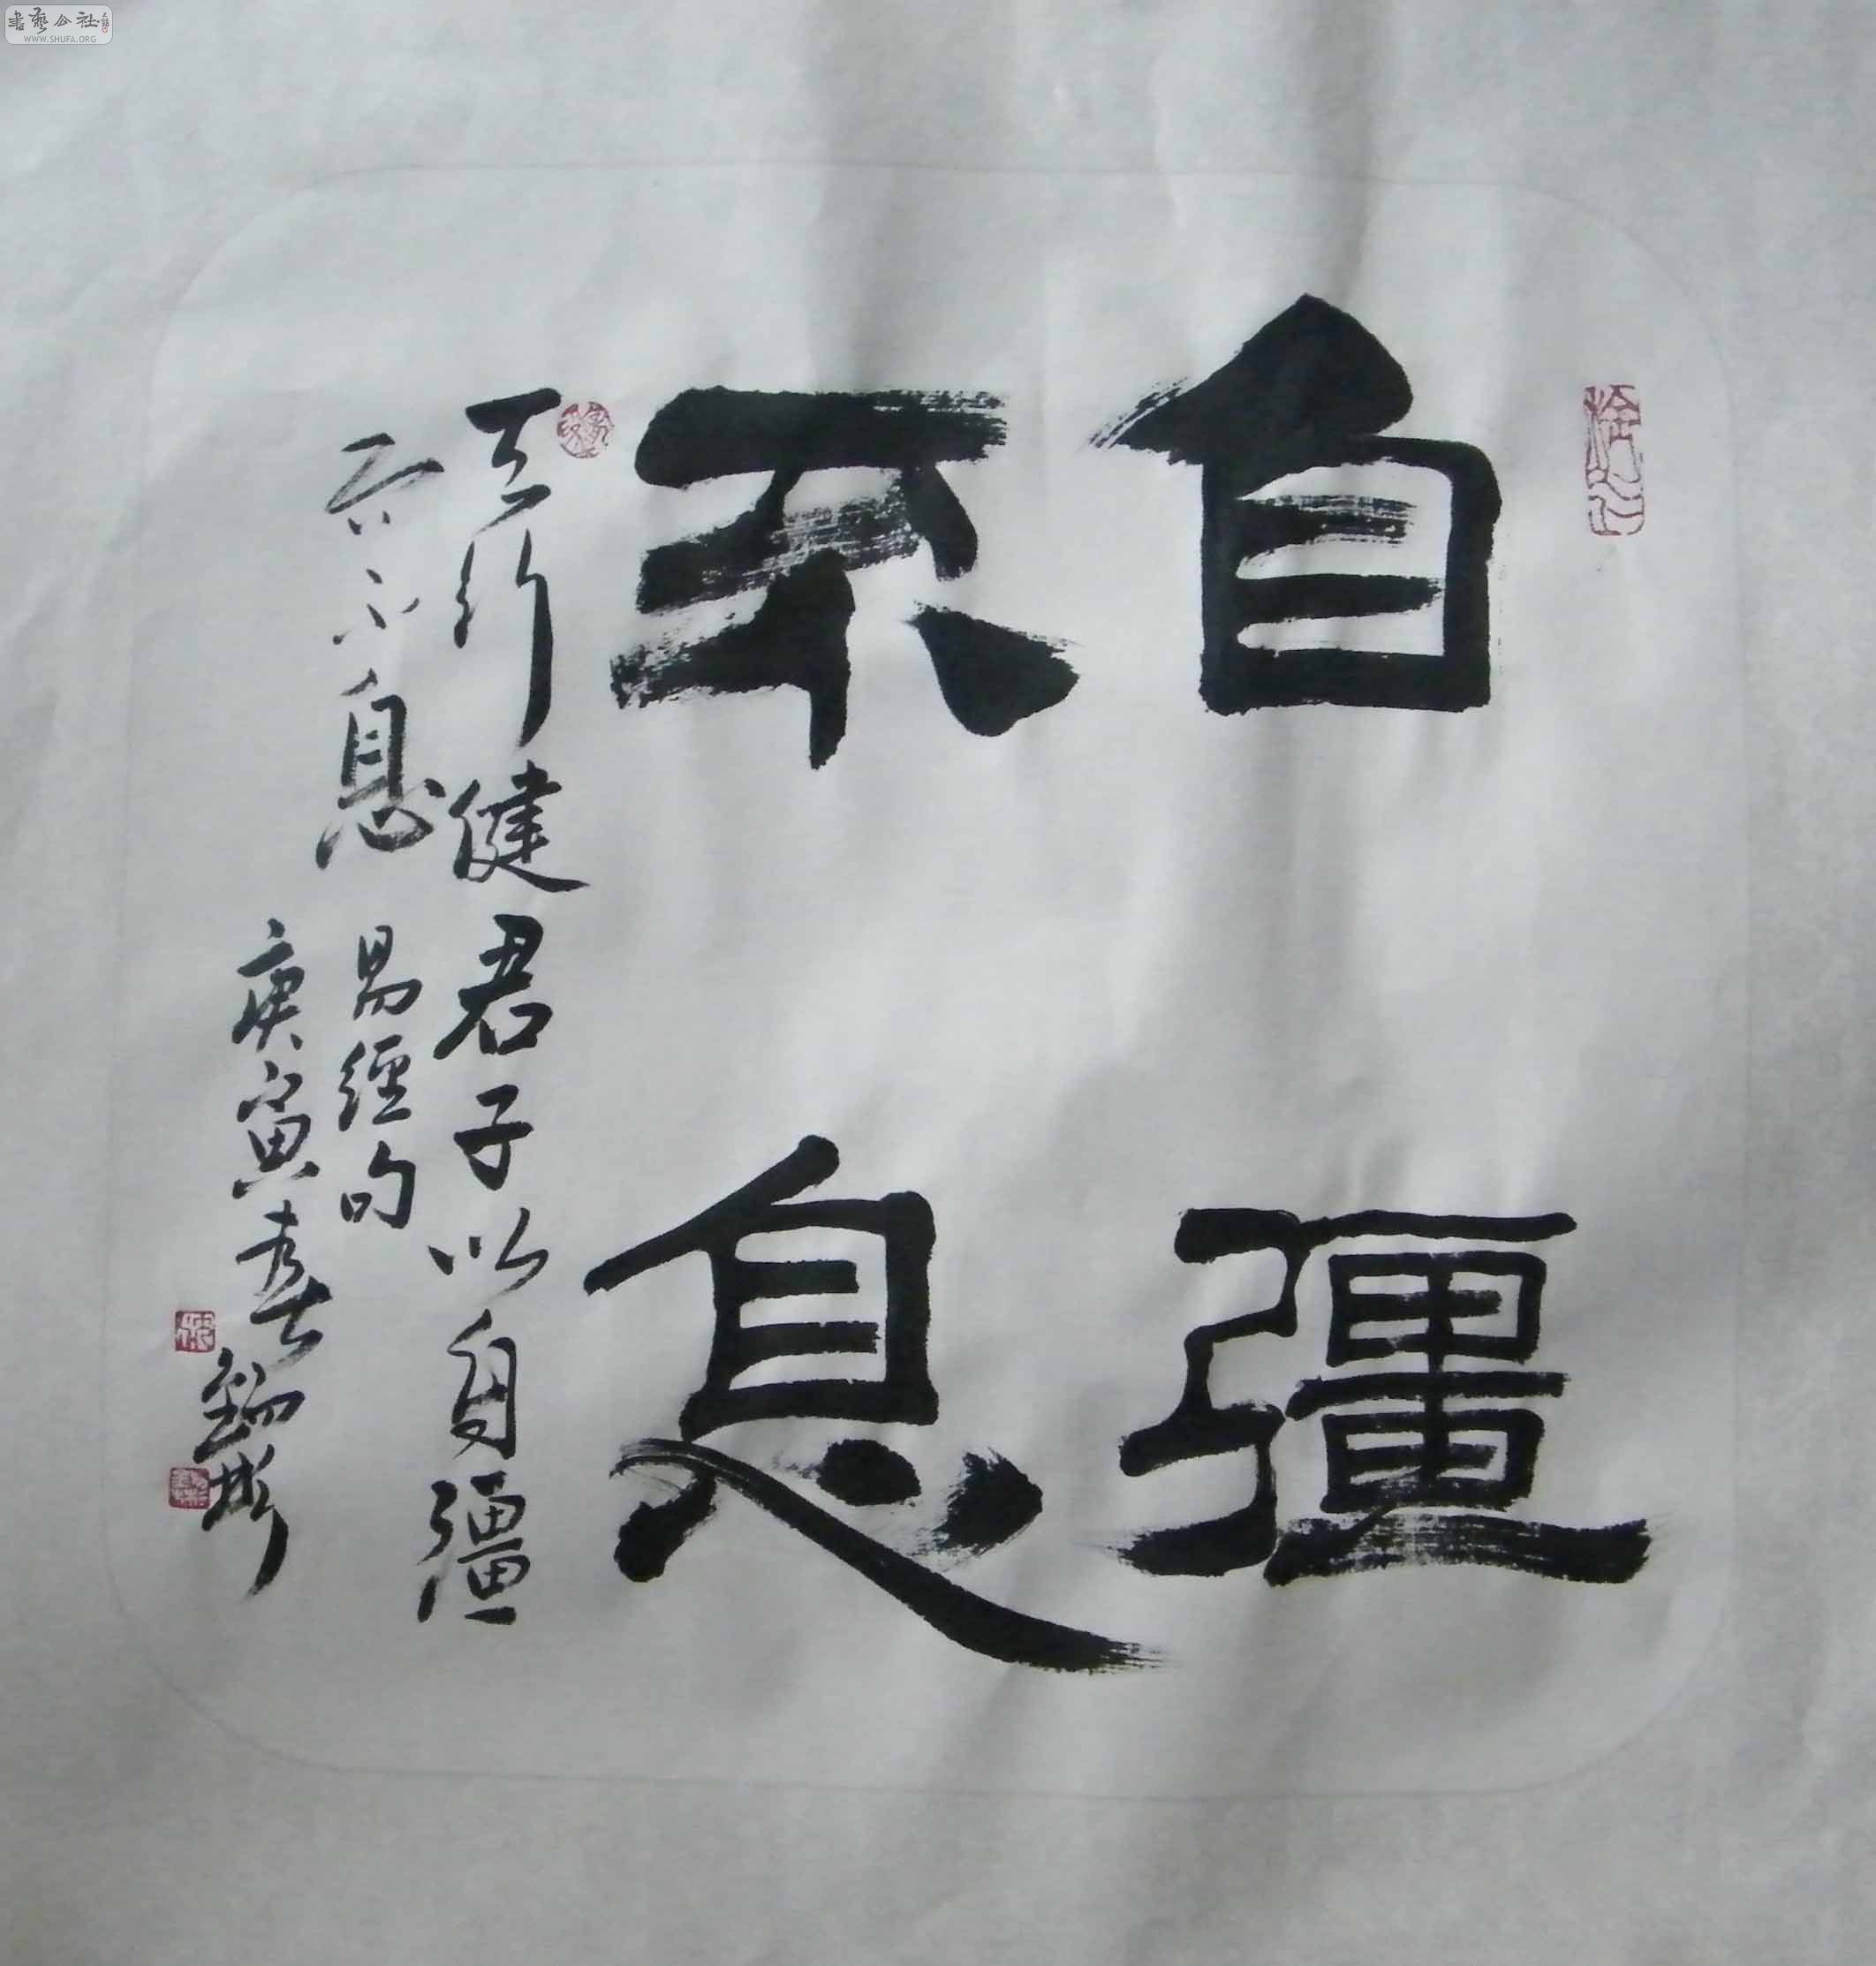 自彊
不息
天行健君子以自彊
不息 易經句
庚寅春
書藝公社
WWW.SHUFA.ORG